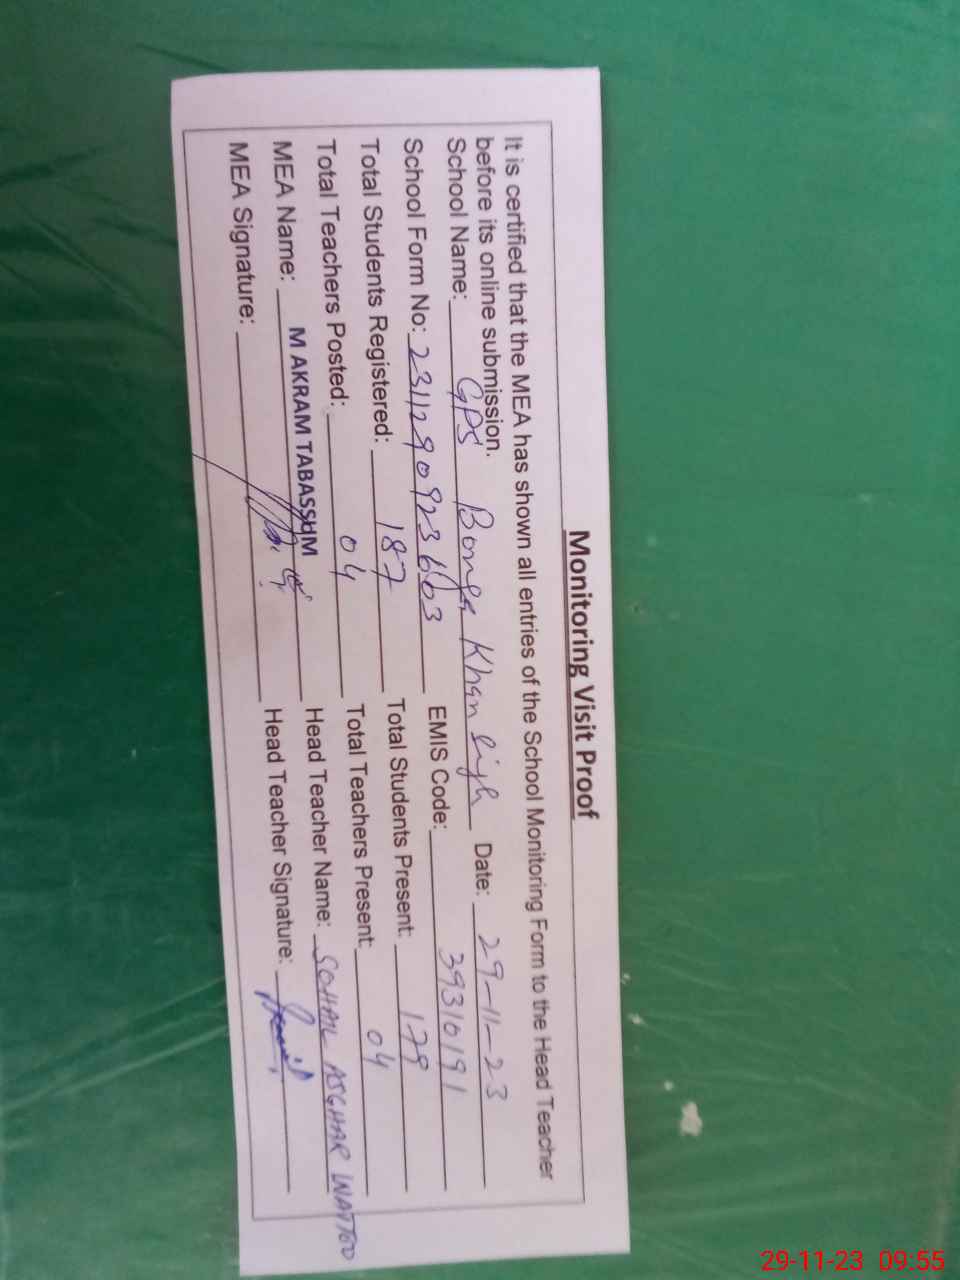 Monitoring Visit Proof
It is certified that the MEA has shown all entries of the School Monitoring Form to the Head Teacher
before its online submission.
School Name: GPS Bonga Khan Date: 29-11-23
School Form No: 2311290923663 EMIS Code: 39310191
Total Students Registered: 187 Total Students Present: 179
Total Teachers Posted: 04 Total Teachers Present: 04
MEA Name: M AKRAM TABASSUM Head Teacher Name: SOHAIL ASGHAR WATTOO
MEA Signature: Head Teacher Signature:
29-11-23 09:55